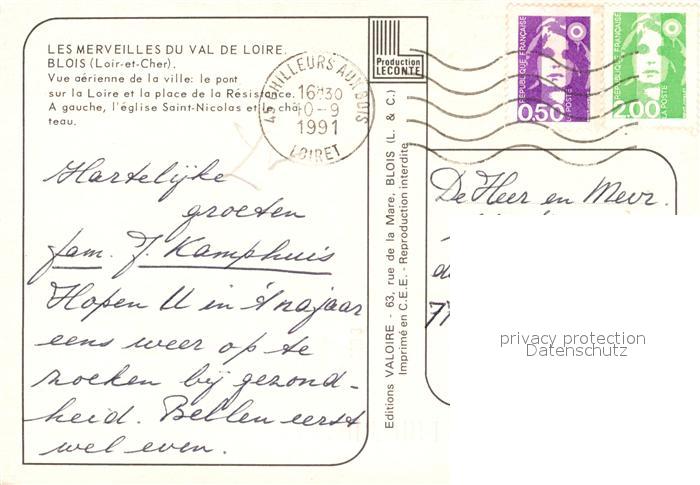 LES MERVEILLES DU VAL DE LOIRE.
BLOIS (Loir-et-Cher).
Vue aérienne de la ville: le pont
sur la Loire et la place de la Résistance.
A gauche, l'église Saint-Nicolas et le châ-
teau.
Production
LECONTE
45 CHILLEURS AUX BOIS
16H30
10-9
1991
LOIRET
REPUBLIQUE FRANÇAISE
0,50
LA POSTE
REPUBLIQUE FRANÇAISE
2,00
LA POSTE
Hartelijke
groeten
fam. J. Kamphuis
Hopen U in 't najaar
eens weer op te
zoeken bij gezond-
heid. Bellen eerst
wel even.
Editions VALOIRE - 63, rue de la Mare, BLOIS (L. & C.)
Imprimé en C.E.E. - Reproduction interdite
De Heer en Mevr.
privacy protection
Datenschutz